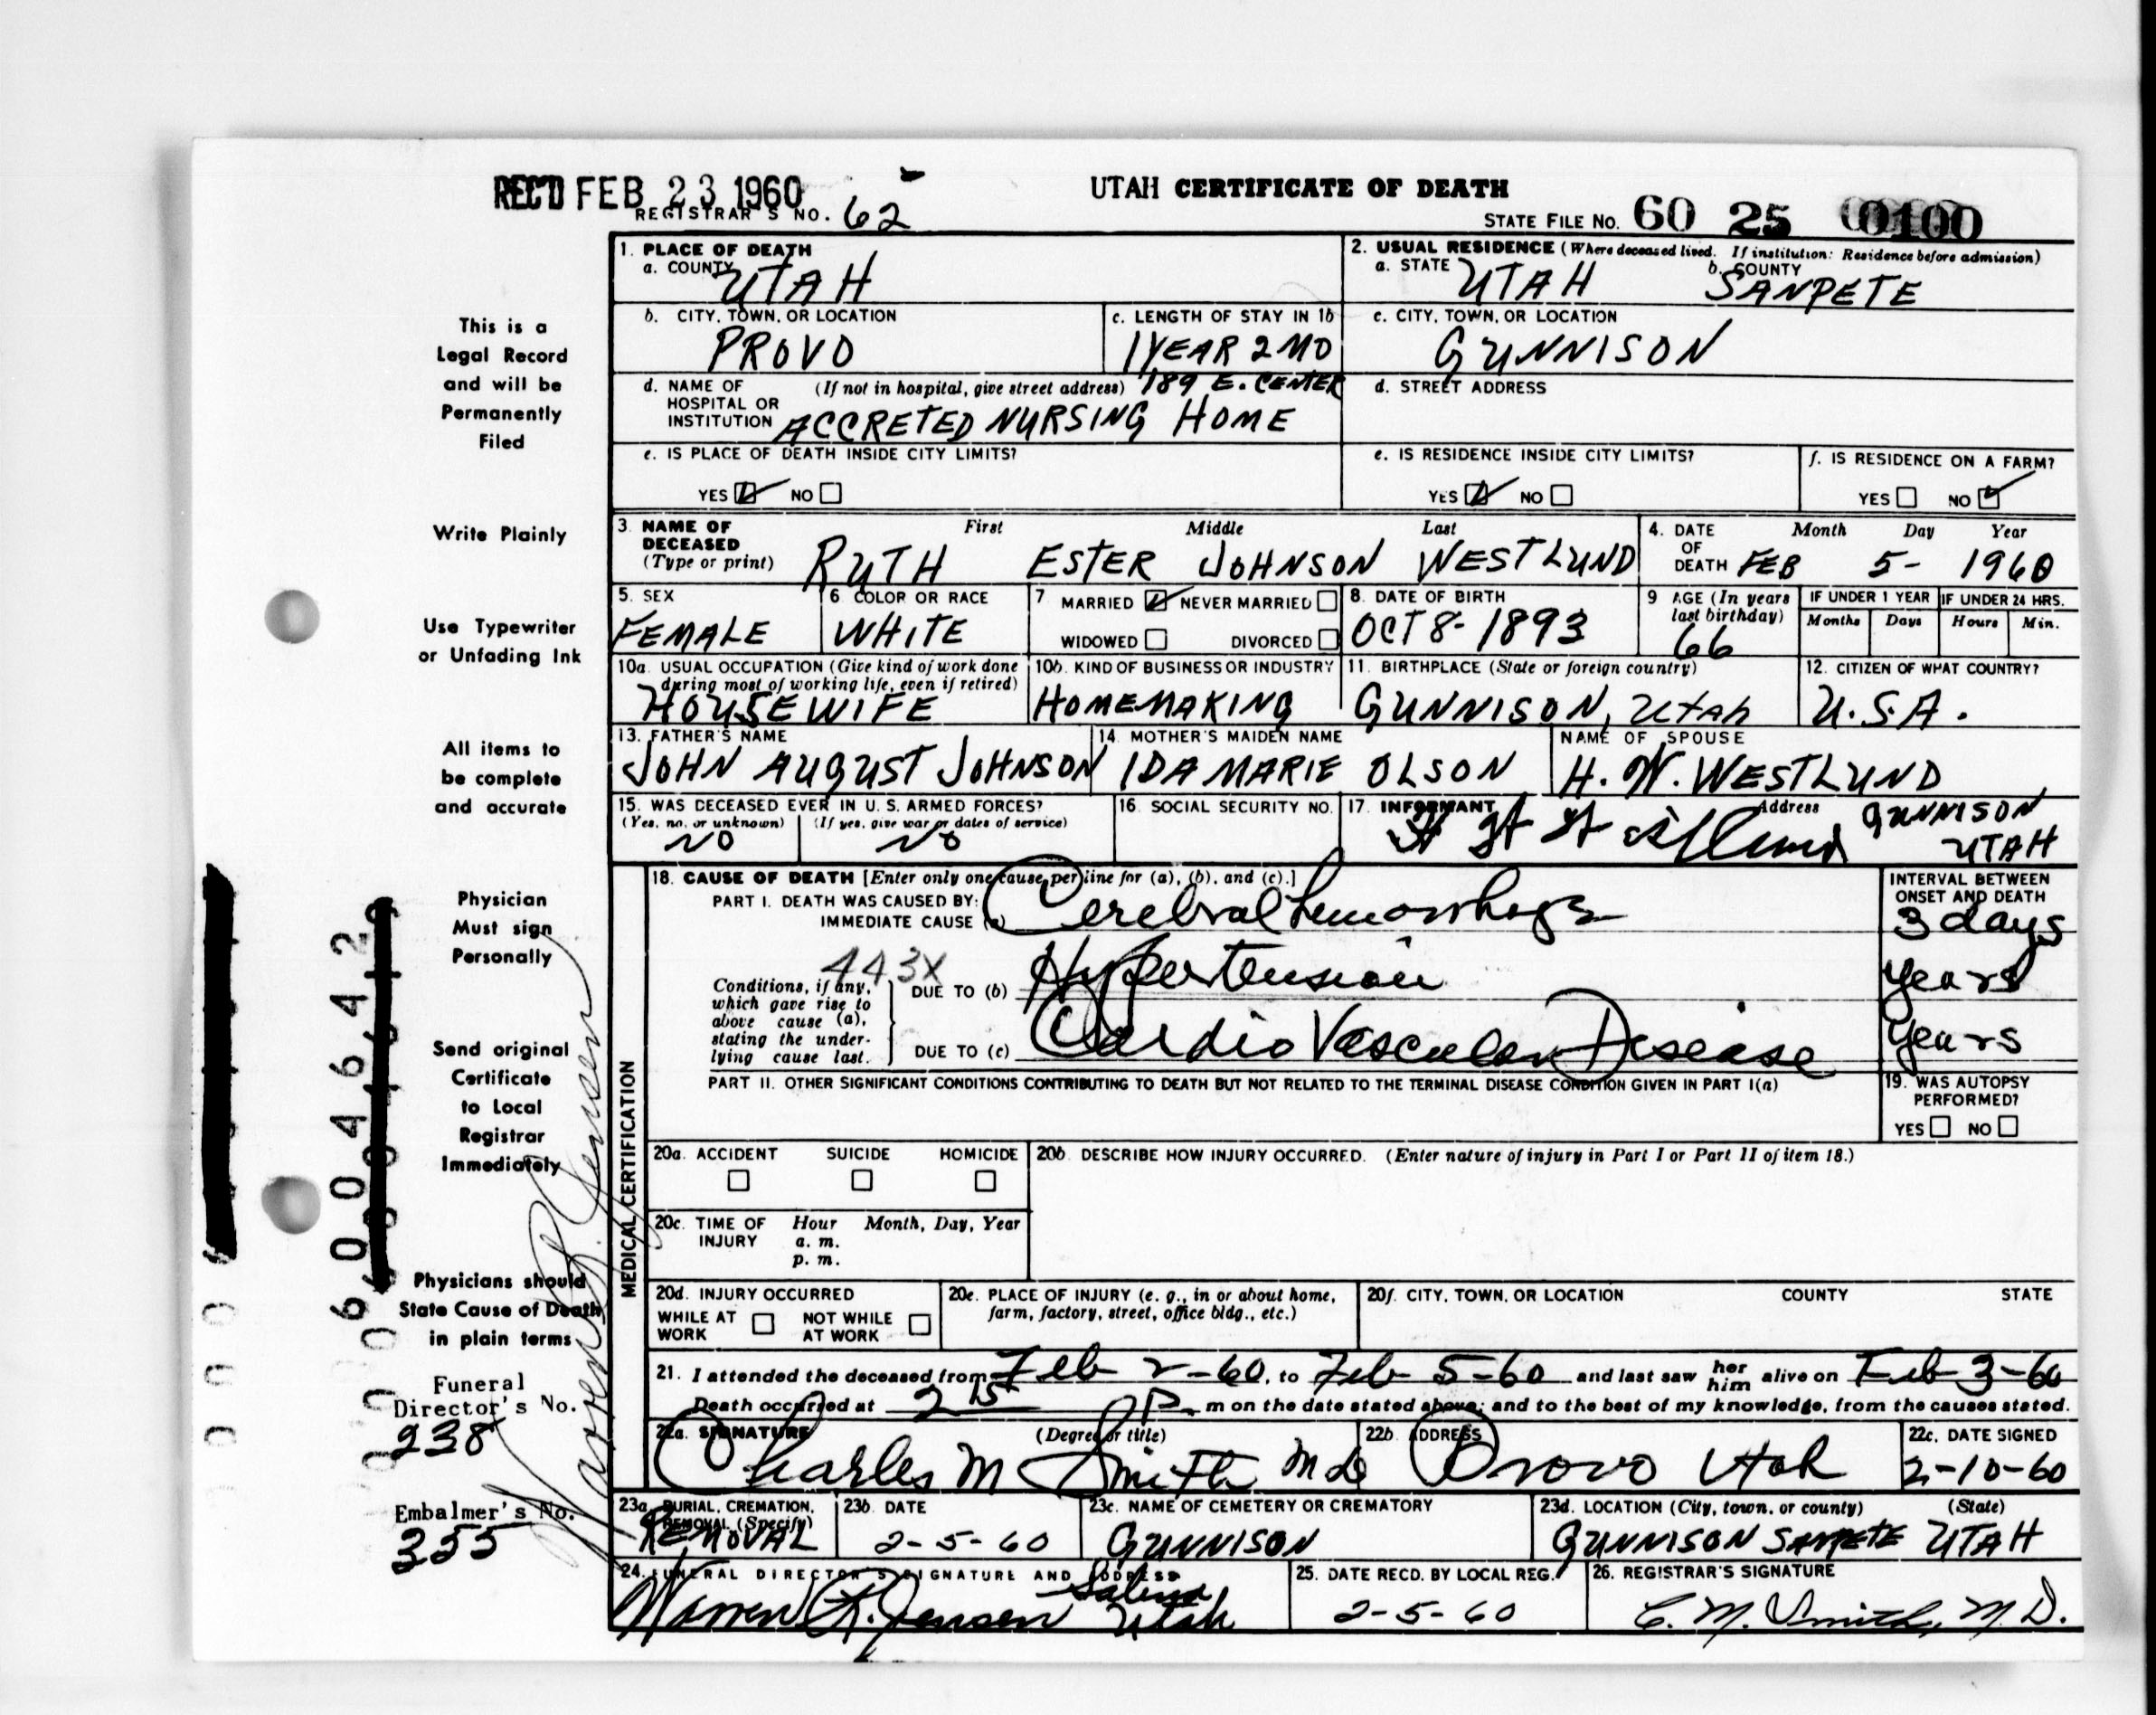 REC'D FEB 23 1960
REGISTRAR'S NO. 62
UTAH CERTIFICATE OF DEATH
STATE FILE NO. 60 25 0100
This is a
Legal Record
and will be
Permanently
Filed
Write Plainly
Use Typewriter
or Unfading Ink
All items to
be complete
and accurate
Physician
Must sign
Personally
Send original
Certificate
to Local
Registrar
Immediately
Physicians should
State Cause of Death
in plain terms
Funeral
Director's No.
238
Embalmer's No.
355
Warren R. Jensen
600 4642
1. PLACE OF DEATH
a. COUNTY UTAH
2. USUAL RESIDENCE (Where deceased lived. If institution: Residence before admission)
a. STATE UTAH b. COUNTY SANPETE
b. CITY, TOWN, OR LOCATION PROVO
c. LENGTH OF STAY IN 1b 1 YEAR 2 MO
c. CITY, TOWN, OR LOCATION GUNNISON
d. NAME OF HOSPITAL OR INSTITUTION (If not in hospital, give street address) 189 E. CENTER
ACCRETED NURSING HOME
d. STREET ADDRESS
e. IS PLACE OF DEATH INSIDE CITY LIMITS?
YES NO
e. IS RESIDENCE INSIDE CITY LIMITS?
YES NO
f. IS RESIDENCE ON A FARM?
YES NO
3. NAME OF DECEASED (Type or print) First Middle Last
RUTH ESTER JOHNSON WESTLUND
4. DATE OF DEATH Month Day Year
FEB 5- 1960
5. SEX FEMALE
6 COLOR OR RACE WHITE
7 MARRIED NEVER MARRIED
WIDOWED DIVORCED
8. DATE OF BIRTH OCT 8- 1893
9 AGE (In years last birthday) 66
IF UNDER 1 YEAR Months Days
IF UNDER 24 HRS. Hours Min.
10a. USUAL OCCUPATION (Give kind of work done during most of working life, even if retired)
HOUSEWIFE
10b. KIND OF BUSINESS OR INDUSTRY
HOMEMAKING
11. BIRTHPLACE (State or foreign country)
GUNNISON, Utah
12. CITIZEN OF WHAT COUNTRY?
U.S.A.
13. FATHER'S NAME
JOHN AUGUST JOHNSON
14. MOTHER'S MAIDEN NAME
IDA MARIE OLSON
NAME OF SPOUSE
H. W. WESTLUND
15. WAS DECEASED EVER IN U. S. ARMED FORCES?
(Yes, no, or unknown) (If yes, give war or dates of service)
NO NO
16. SOCIAL SECURITY NO.
17. INFORMANT Address
GUNNISON
UTAH
MEDICAL CERTIFICATION
18. CAUSE OF DEATH [Enter only one cause per line for (a), (b), and (c).]
PART I. DEATH WAS CAUSED BY:
IMMEDIATE CAUSE (a) Cerebral hemorrhage
INTERVAL BETWEEN ONSET AND DEATH
3 days
443X
Conditions, if any, which gave rise to above cause (a), stating the underlying cause last.
DUE TO (b) Hypertension
years
DUE TO (c) Cardio Vascular Disease
years
PART II. OTHER SIGNIFICANT CONDITIONS CONTRIBUTING TO DEATH BUT NOT RELATED TO THE TERMINAL DISEASE CONDITION GIVEN IN PART I(a)
19. WAS AUTOPSY PERFORMED?
YES NO
20a. ACCIDENT SUICIDE HOMICIDE
20b. DESCRIBE HOW INJURY OCCURRED. (Enter nature of injury in Part I or Part II of item 18.)
20c. TIME OF INJURY Hour Month, Day, Year
a. m.
p. m.
20d. INJURY OCCURRED
WHILE AT WORK NOT WHILE AT WORK
20e. PLACE OF INJURY (e. g., in or about home, farm, factory, street, office bldg., etc.)
20f. CITY, TOWN, OR LOCATION COUNTY STATE
21. I attended the deceased from Feb 2-60, to Feb 5-60 and last saw her him alive on Feb 3-60
Death occurred at 2 15 P. m on the date stated above; and to the best of my knowledge, from the causes stated.
22a. SIGNATURE (Degree or title)
Charles M Smith MD
22b. ADDRESS
Provo Utah
22c. DATE SIGNED
2-10-60
23a. BURIAL, CREMATION, REMOVAL (Specify)
REMOVAL
23b. DATE
2-5-60
23c. NAME OF CEMETERY OR CREMATORY
GUNNISON
23d. LOCATION (City, town, or county) (State)
GUNNISON SANPETE UTAH
24. FUNERAL DIRECTOR'S SIGNATURE AND ADDRESS
Warren R. Jensen Salina Utah
25. DATE RECD. BY LOCAL REG.
2-5-60
26. REGISTRAR'S SIGNATURE
C. M. Smith, M.D.